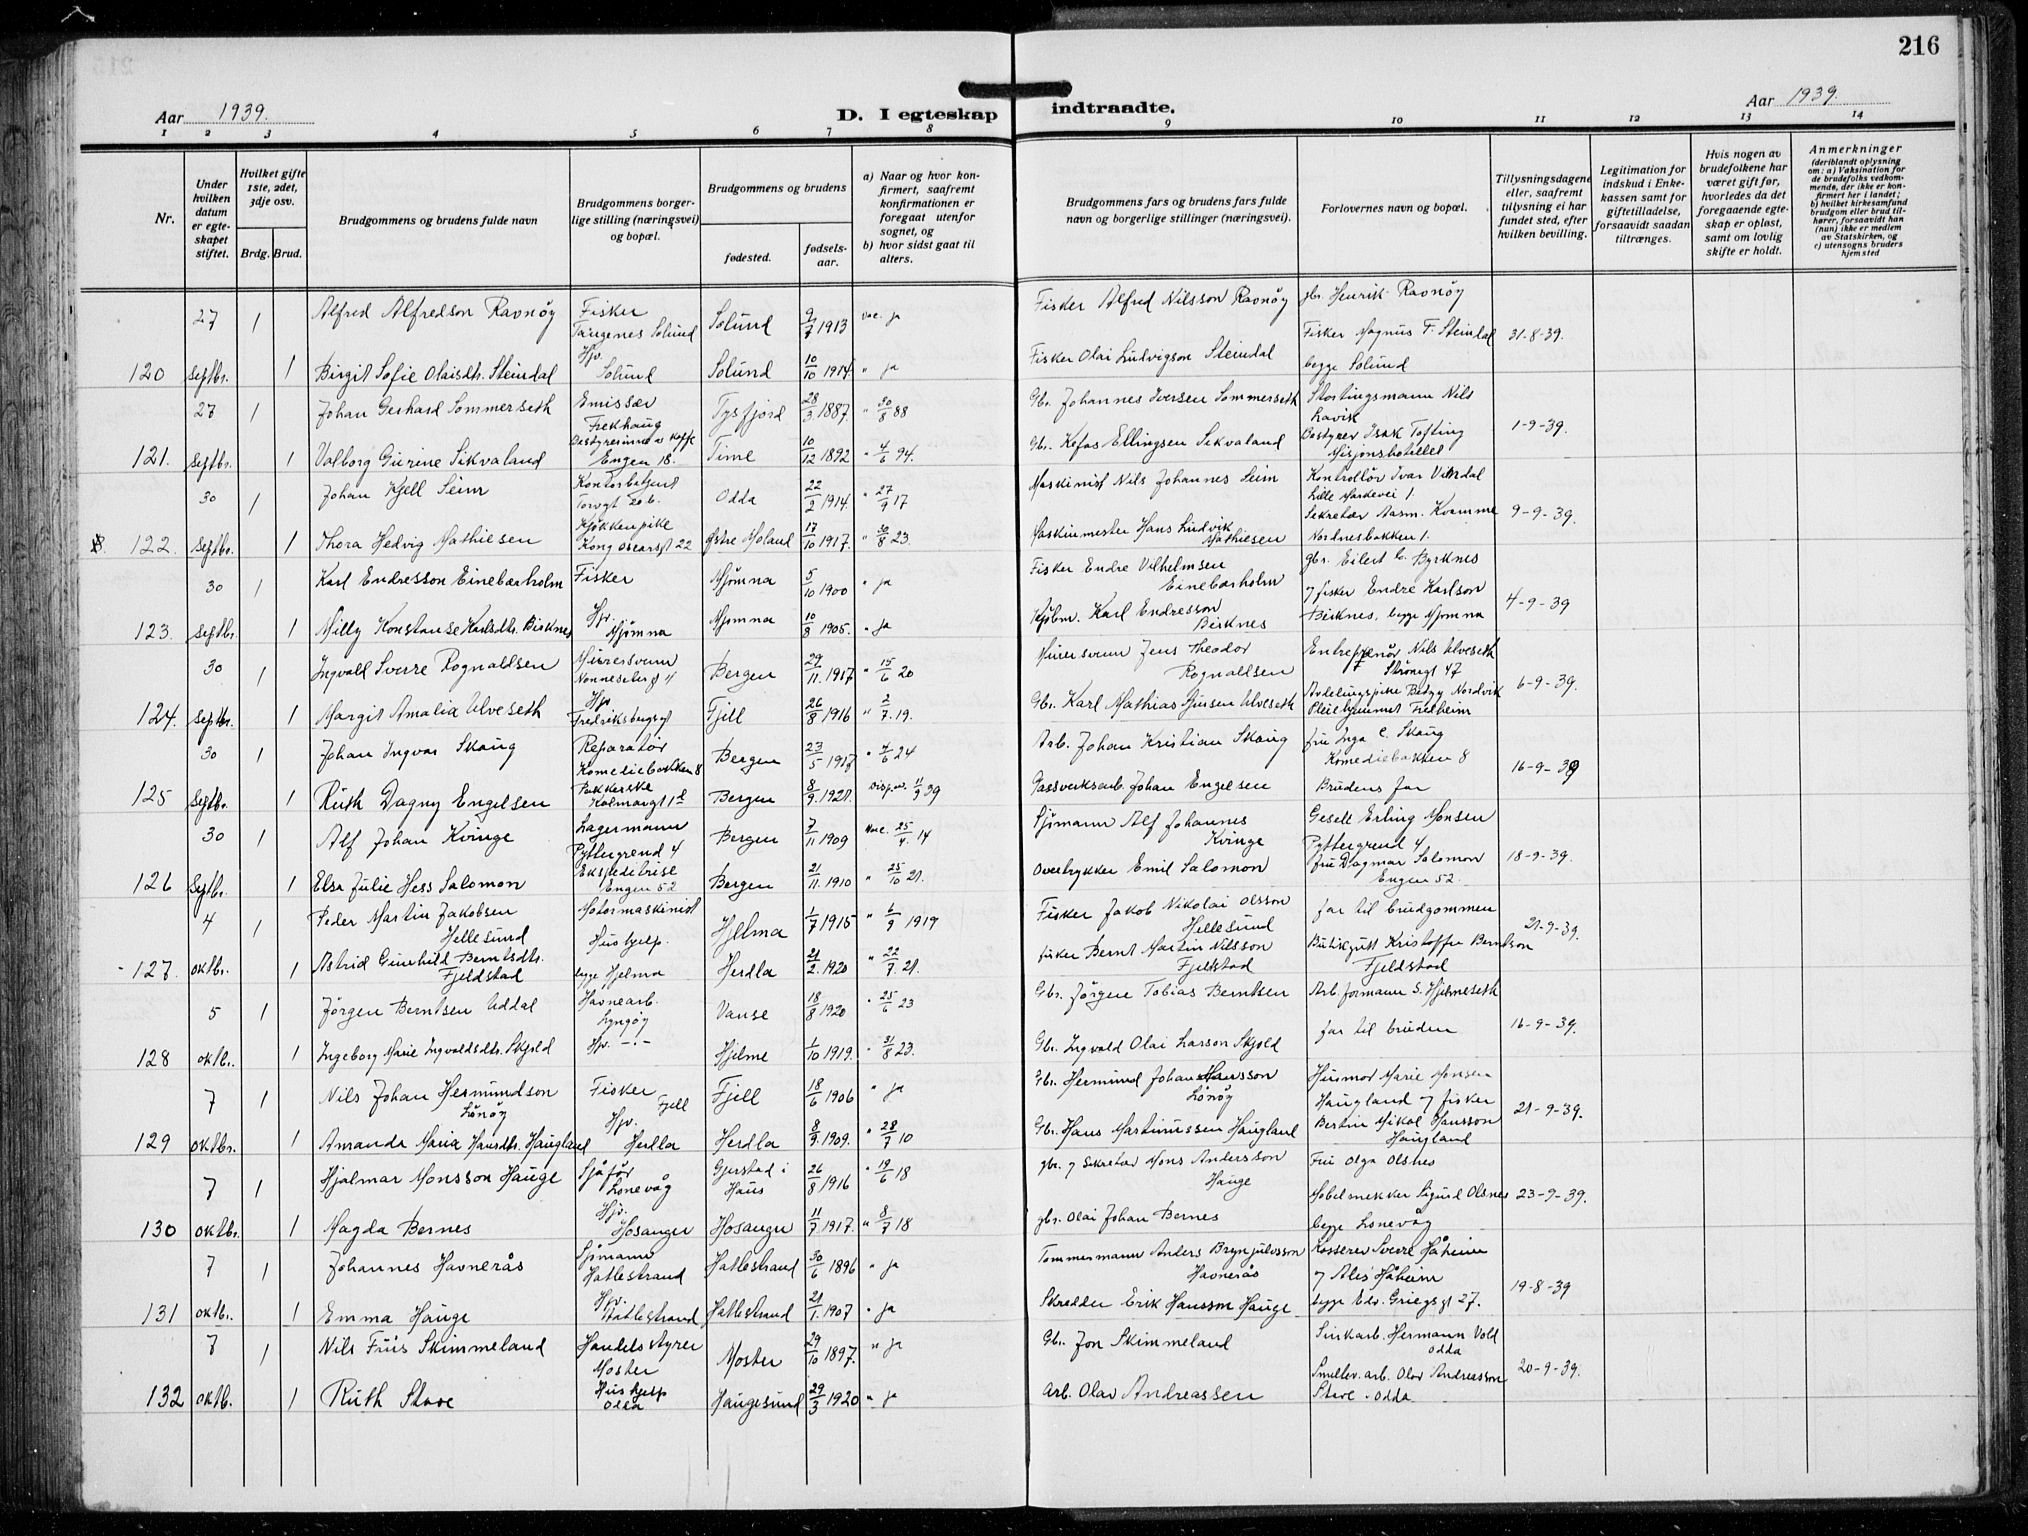 216
Aar 1939.
D. I egteskap indtraadte.
Aar 1939.
1 2 3 4 5 6 7 8 9 10 11 12 13 14
Nr.
Under hvilken datum er egteskapet stiftet.
Hvilket gifte 1ste, 2det, 3dje osv.
Brdg. Brud.
Brudgommens og brudens fulde navn
Brudgommens borgerlige stilling (næringsvei) og bopæl.
Brudgommens og brudens
fødested.
fødselsaar.
a) Naar og hvor konfirmert, saafremt konfirmationen er foregaat utenfor sognet, og
b) hvor sidst gaat til alters.
Brudgommens fars og brudens fars fulde navn og borgerlige stillinger (næringsvei).
Forlovernes navn og bopæl.
Tillysningsdagene eller, saafremt tillysning ei har fundet sted, efter hvilken bevilling.
Legitimation for indskud i Enkekassen samt for giftetilladelse, forsaavidt saadan tiltrænges.
Hvis nogen av brudefolkene har været gift før, hvorledes da det foregaaende egteskap er opløst, samt om lovlig skifte er holdt.
Anmerkninger
(deriblandt oplysning om: a) Vaksination for de brudefolks vedkommende, der ikke er konfirmert her i landet; b) hvilket kirkesamfund brudgom eller brud tilhører, forsaavidt han (hun) ikke er medlem av Statskirken, og c) utensogns bruders hjemsted
27 1 Alfred Alfredson Ravnøy Fisker Solund 9/7 1913 vac. ja Fisker Alfred Nilsson Ravnøy gbr. Henrik Ravnøy
Solund Fisker Magnus T. Steindal 31-8-39.
120 Septbr. 1 Birgit Sofie Olaisdtr. Steindal Hjv. Solund Solund 10/10 1914 " ja Fisker Olai Ludvigson Steindal begge Solund
27 1 Johan Gerhard Sommerseth Emissær Frekhaug Tysfjord 28/3 1887. " 30/8 88 Gbr. Johannes Iversen Sommerseth Stortingsmann Nils Lavik
121. Septbr. 1 Valborg Gurine Sikvaland Bestyrerinne Engen 18. Time 10/12 1892 " 4/6 94. Gbr. Kefas Ellingsen Sikvaland Bestyrer Isak Tofting Misjonshotellet 1-9-39.
30 1 Johan Kjell Seim Kontorbetjent Torvgt 20 b. Odda 22/2 1914. " 27/9 17 Maskinist Nils Johannes Seim Kontrollør Ivar Vikdal Lille Markevei 1.
122. Septbr. 1 Thora Hedvig Mathiesen Kjøkkenpike Kong Oscarsgt 22 Østre Moland 17/10 1917. " 30/8 23 Maskinmester Hans Ludvik Mathiesen Sekretær Aasm. Kvamme Nordnesbakken 1. 9-9-39.
30 1 Karl Endresson Einebærholm Fisker Mjømna 5/10 1900 " ja Fisker Endre Vilhelmsen Einebærholm gbr. Eilert C. Byrknes
123. Septbr. 1 Milly Konstanse Karlsdtr. Birknes Hjv. Mjømna Mjømna 10/8 1905. " ja Kjøbm. Karl Endresson Birknes og fisker Endre Karlson Birknes, begge Mjømna 4-9-39
30 1 Ingvald Sverre Rognaldsen Murersvenn Nonnesetergt 4 Bergen 29/11. 1917 " 15/6 20 Murersvenn Jens Theodor Rognaldsen Entreprenør Nils Ulveseth Strømgt 47
124. Septbr. 1 Margit Amalia Ulveseth Hjv. Fredriksbergsgt Fjell 26/8 1916 " 2/7. 19. Gbr. Karl Mathias Ulveseth Avdelingspike Betzy Nordvik Pleiehjemmet Fredheim 6-9-39.
30 1 Johan Ingvar Skaug Reparatør Komediebakken 8 Bergen 23/5 1917 " 4/6 24 Arb. Johan Kristian Skaug fru Inga C. Skaug Komediebakken 8
125 Septbr. 1 Ruth Dagny Engelsen Pakkerske Kalmargt 1 d Bergen 8/9. 1921. Disp. 11/9 39 Gassverksarb. Johan Engelsen Brudens far 16-9-39
30 1 Alf Johan Kvinge Lagermann Pyttergrend 4 Bergen 7/11 1909 Vac. 25/4. 14 Sjømann Alf Johannes Kvinge Gesell Erling Monsen Pyttergrend 4
126 Septbr. 1 Elsa Julie Hess Salomon Ekspeditrise Engen 52 Bergen 21/11. 1910 " 25/10 21. Overtrykker Emil Salomon fru Dagmar Salomon Engen 52. 18-9-39.
4 1 Peder Martin Jakobsen Hellesund Motormaskinist Hjelma 1/7 1915 " 6/9 1919 Fisker Jakob Nikolai Olsson Hellesund far til brudgommen
127. oktbr. 1 Astrid Gunhild Berntsdtr. Fjeldstad Hushjelp. begge Hjelma Herdla 21/2. 1920 " 22/7 21. Fisker Bernt Martin Nilsson Fjeldstad Butikgutt Kristoffer Berntson Fjeldstad 21-9-39.
5 1 Jørgen Berntsen Uddal Havnearb. Lyngøy Vanse 18/8 1920 " 25/6 23 Gbr. Jørgen Tobias Berntsen Arb. formann S. Hjelmeseth
128 oktbr. 1 Ingeborg Marie Ingvaldsdtr. Skjold Hjv. -"- Hjelme 1/10 1919. " 31/8 23. Gbr. Ingvald Olai Larson Skjold far til bruden 16-9-39.
7 1 Nils Johan Hermundson Lønøy Fisker Fjell Fjell 18/6 1906 " ja Gbr. Hermund Johan Hansson Lønøy Husmor Marie Monsen
129 oktbr. 1 Amanda Maria Hansdtr. Haugland Hjv. Herdla Herdla 8/9. 1909. " 28/7 10 Gbr. Hans Martinussen Haugland Haugland og fisker Bertin Mikal Hansson Haugland 21-9-39.
7 1 Hjalmar Monsson Hauge Sjåfør Lonevåg Gjerstad i Haus 26/8 1916 " 19/6 18 gbr. og Sekretær Mons Andersson Hauge Fru Olga Olsnes
130 oktbr. 1 Magda Bernes Hjv. Hosanger Hosanger 11/7. 1917. " 8/7 18 gbr. Olai Johan Bernes Møbelsnekker Sigurd Olsnes begge Lonevåg 23-9-39.
7 1 Johannes Havnerås Sjømann Hatlestrand Hatlestrand 30/6 1896 " ja Tømmermann Anders Brynjulvsson Havnerås Kasserer Sverre Håheim
131 oktbr. 1 Emma Hauge Hjv. Hatlestrand Hatlestrand 21/1. 1907 " ja Skredder Erik Hansson Hauge og Alis Håheim begge Edv. Griegsgt 27. 19-8-39
7 1 Nils Friis Skimmeland Handelsstyrer Moster Moster 29/10 1897. " ja Gbr. Jon Skimmeland Sinkarb. Hermann Vold Odda
132 oktb. 1 Ruth Stave Hushjelp Odda Haugesund 29/3 1920 " ja Arb. Olav Andreassen Smeltev. arb. Olav Andreasson Stave - Odda 20-9-39.